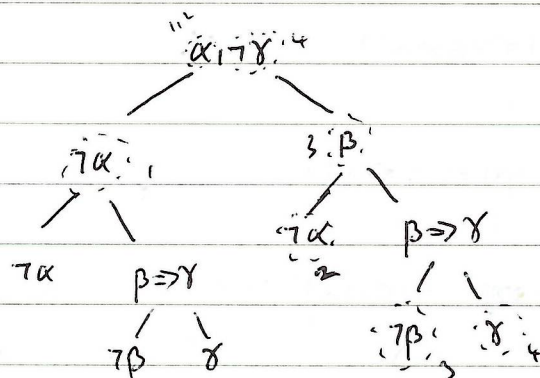 1,2 α, ¬γ 4
¬α 1 3 β
¬α β⇒γ ¬α 2 β⇒γ
¬β γ ¬β 3 γ 4